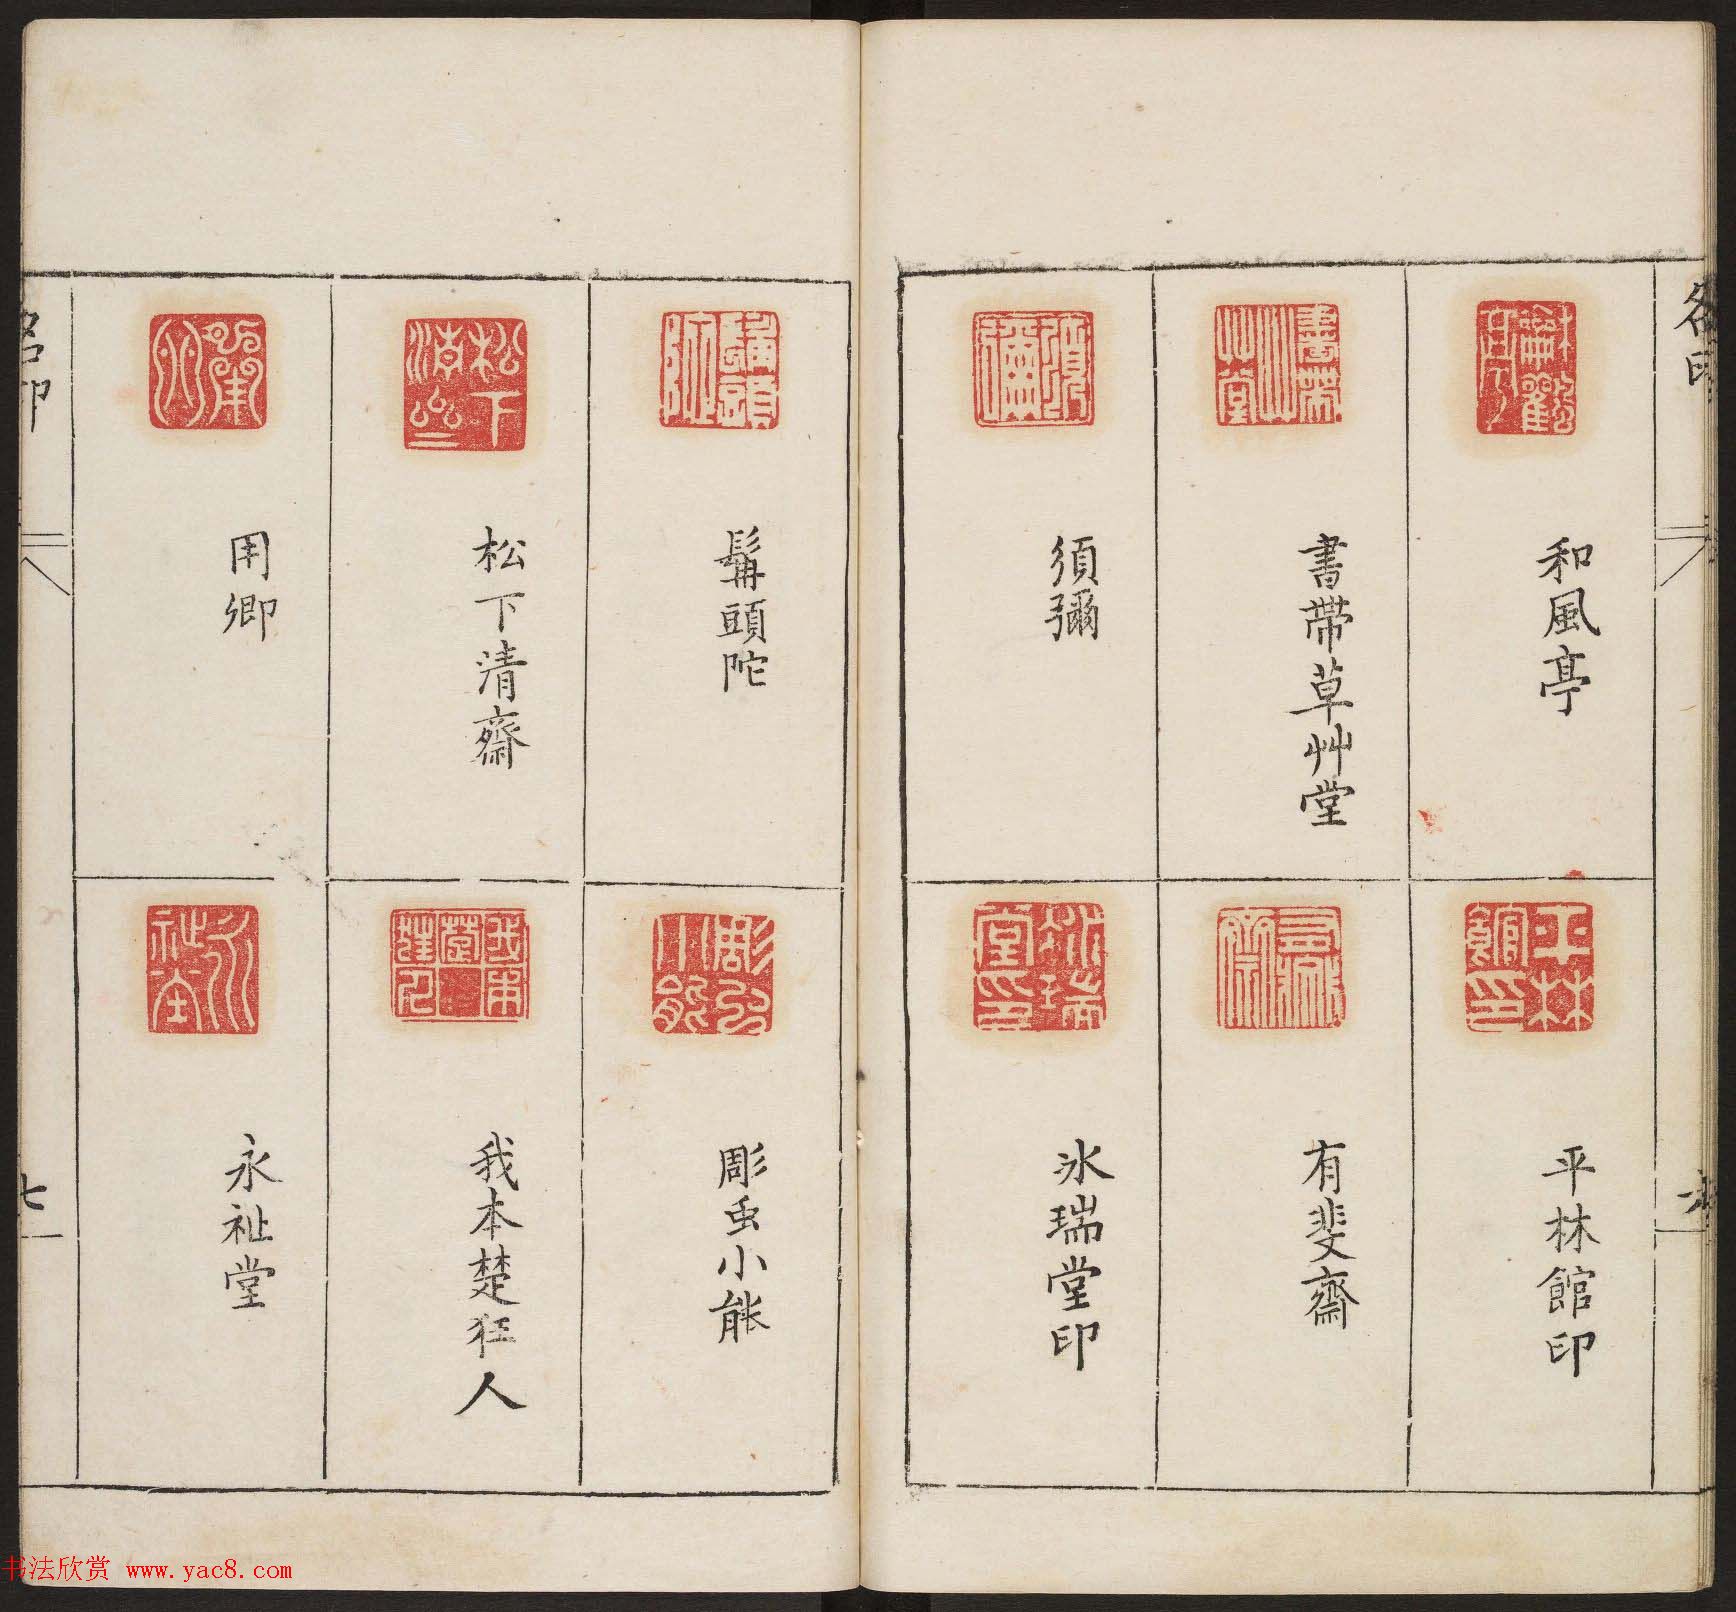 名印
和風亭
平林館印
書帶草艸堂
有斐齋
須彌
氷瑞堂印
髯頭陀
彫虫小能
松下清齋
我本楚狂人
用卿
永祉堂
名印
七
书法欣赏 www.yac8.com